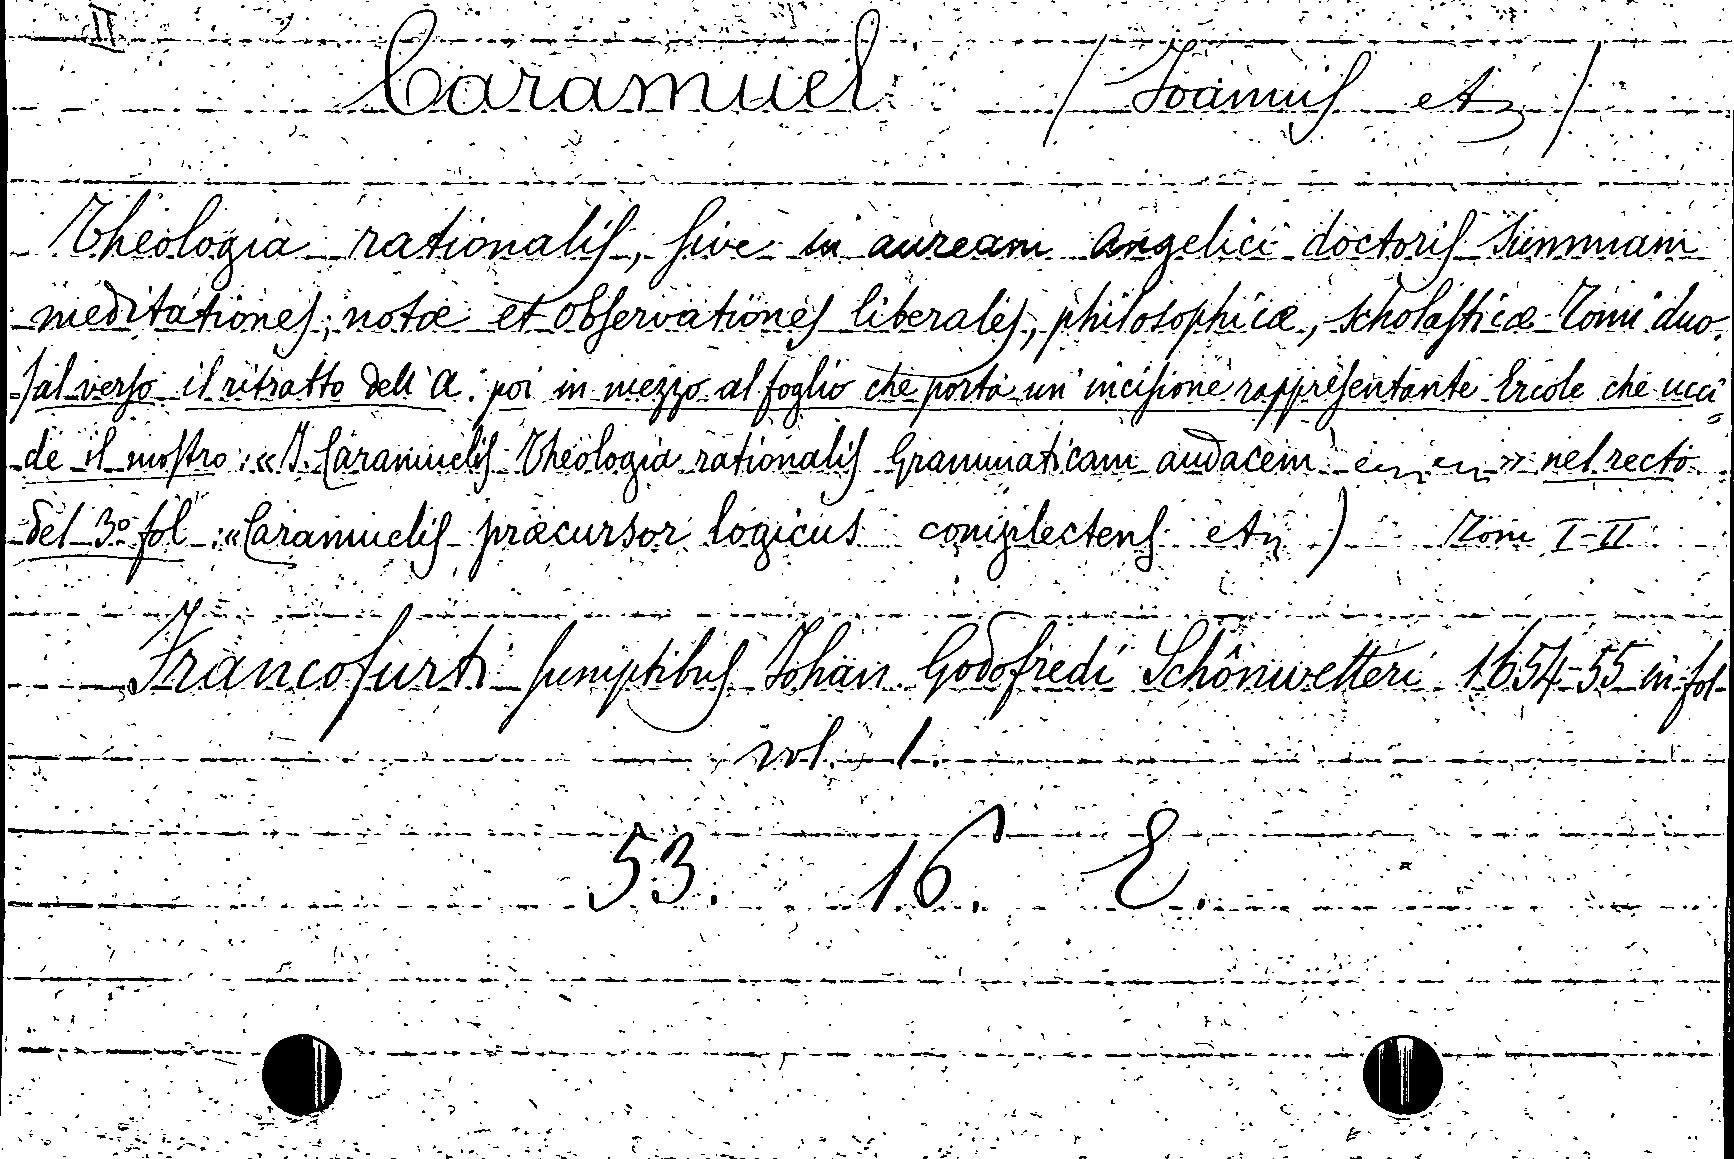 II
Caramuel (Joannis etc)
Theologia rationalis, sive in auream Angelici doctoris Summam
meditationes, notæ et observationes liberales, philosophicæ, scholasticæ Tomi duo.
(al verso il ritratto dell'A. poi in mezzo al foglio che porta un'incisione rappresentante Ercole che ucci
de il mostro: «I. Caramuelis Theologia rationalis Grammaticam audacem » nel recto
del 3º fol: «Caramuelis præcursor logicus complectens etc) Tom I-II
Francofurti sumptibus Johan Godofredi Schönwetteri 1654-55 in fol
vol. 1.
53. 16. E.